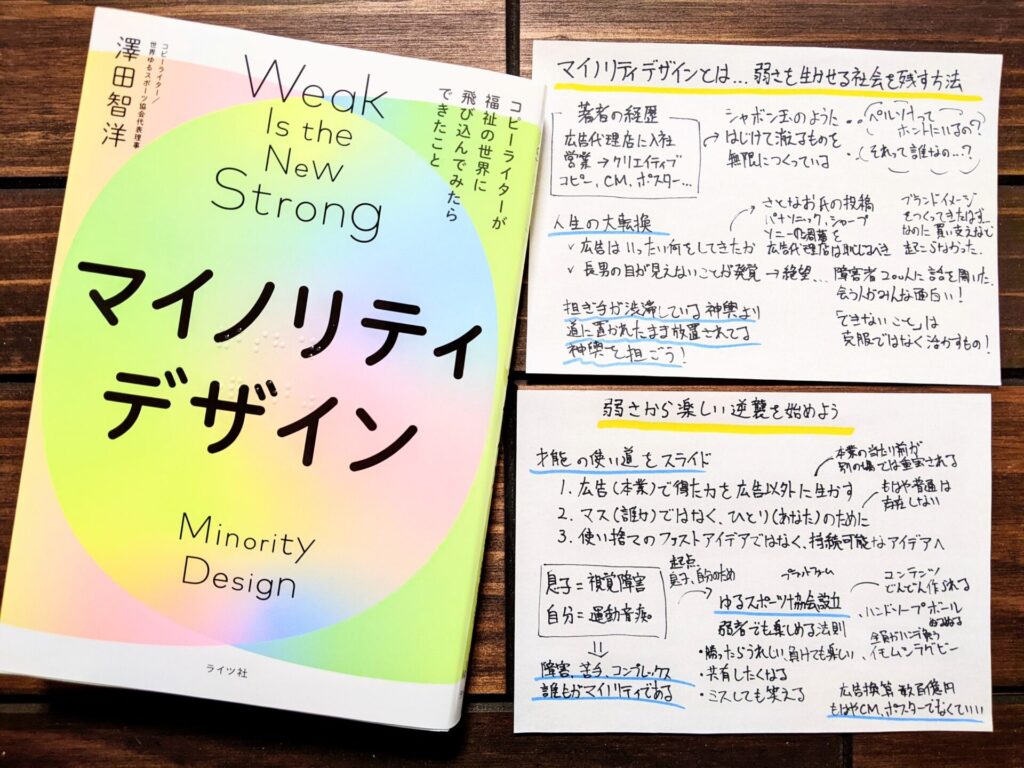 コピーライター/
世界ゆるスポーツ協会代表理事
澤田智洋
Weak
Is the
New
Strong
コピーライターが
福祉の世界に
飛び込んでみたら
できたこと
マイノリティ
デザイン
Minority
Design
ライツ社
マイノリティデザインとは…弱さを生かせる社会を残す方法
著者の経歴
広告代理店に入社
営業→クリエイティブ
コピー、CM、ポスター…
シャボン玉のように
はじけて消えるものを
無限につくっている
ペルソナって
ホントにいるの?
それって誰なの…?
人生の大転換
✓ 広告はいったい何をしてきたか
✓ 長男の目が見えないことが発覚→絶望…
さとなお氏の投稿
パナソニック、シャープ
ソニーの凋落を
広告代理店は恥じるべき
ブランドイメージ
をつくってきたはず
なのに買い支えなど
起こらなかった.
障害者200人に話を聞いた.
会う人がみんな面白い!
「できないこと」は
克服ではなく活かすもの!
担ぎ手が渋滞している神輿より
道に置かれたまま放置されてる
神輿を担ごう!
弱さから楽しい逆襲を始めよう
才能の使い道をスライド
本業の当たり前が
別の場では重宝される
1. 広告(本業)で得た力を広告以外に生かす
もはや普通は
存在しない
2. マス(誰か)ではなく、ひとり(あなた)のために
3. 使い捨てのファストアイデアではなく、持続可能なアイデアへ
息子=視覚障害
自分=運動音痴
障害、苦手、コンプレックス
誰もがマイノリティである
起点
息子、自分のため
プラットフォーム
ゆるスポーツ協会設立
弱者でも楽しめる法則
・勝ったらうれしい、負けても楽しい
・共有したくなる
・ミスしても笑える
コンテンツ
どんどん作られる
、ハンドソープボール
ぬるぬる
全員がハンデ負う
、イモムシラグビー
広告換算 数百億円
もはやCM、ポスターでなくていい